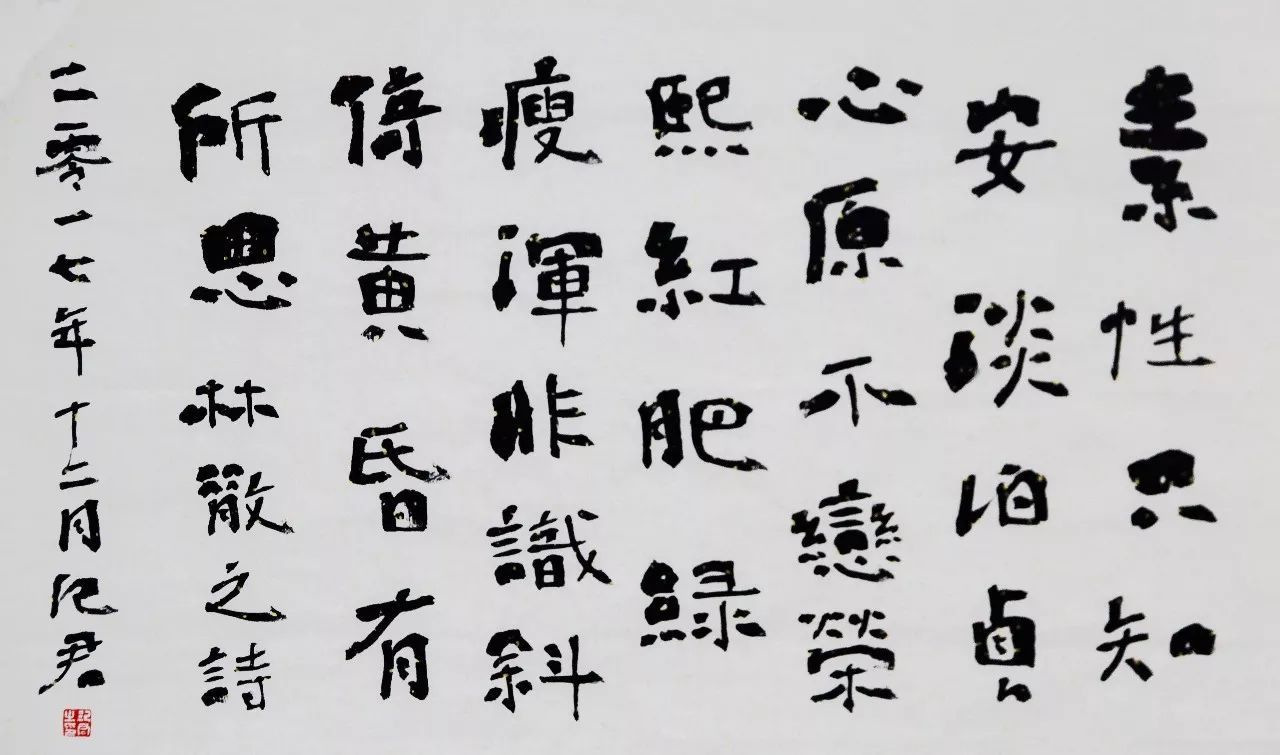 素性只知
安淡泊貞
心原不戀榮
熙紅肥綠
瘦渾非識斜
倚黄昏有
所思林散之詩
二零一七年十二月纪君